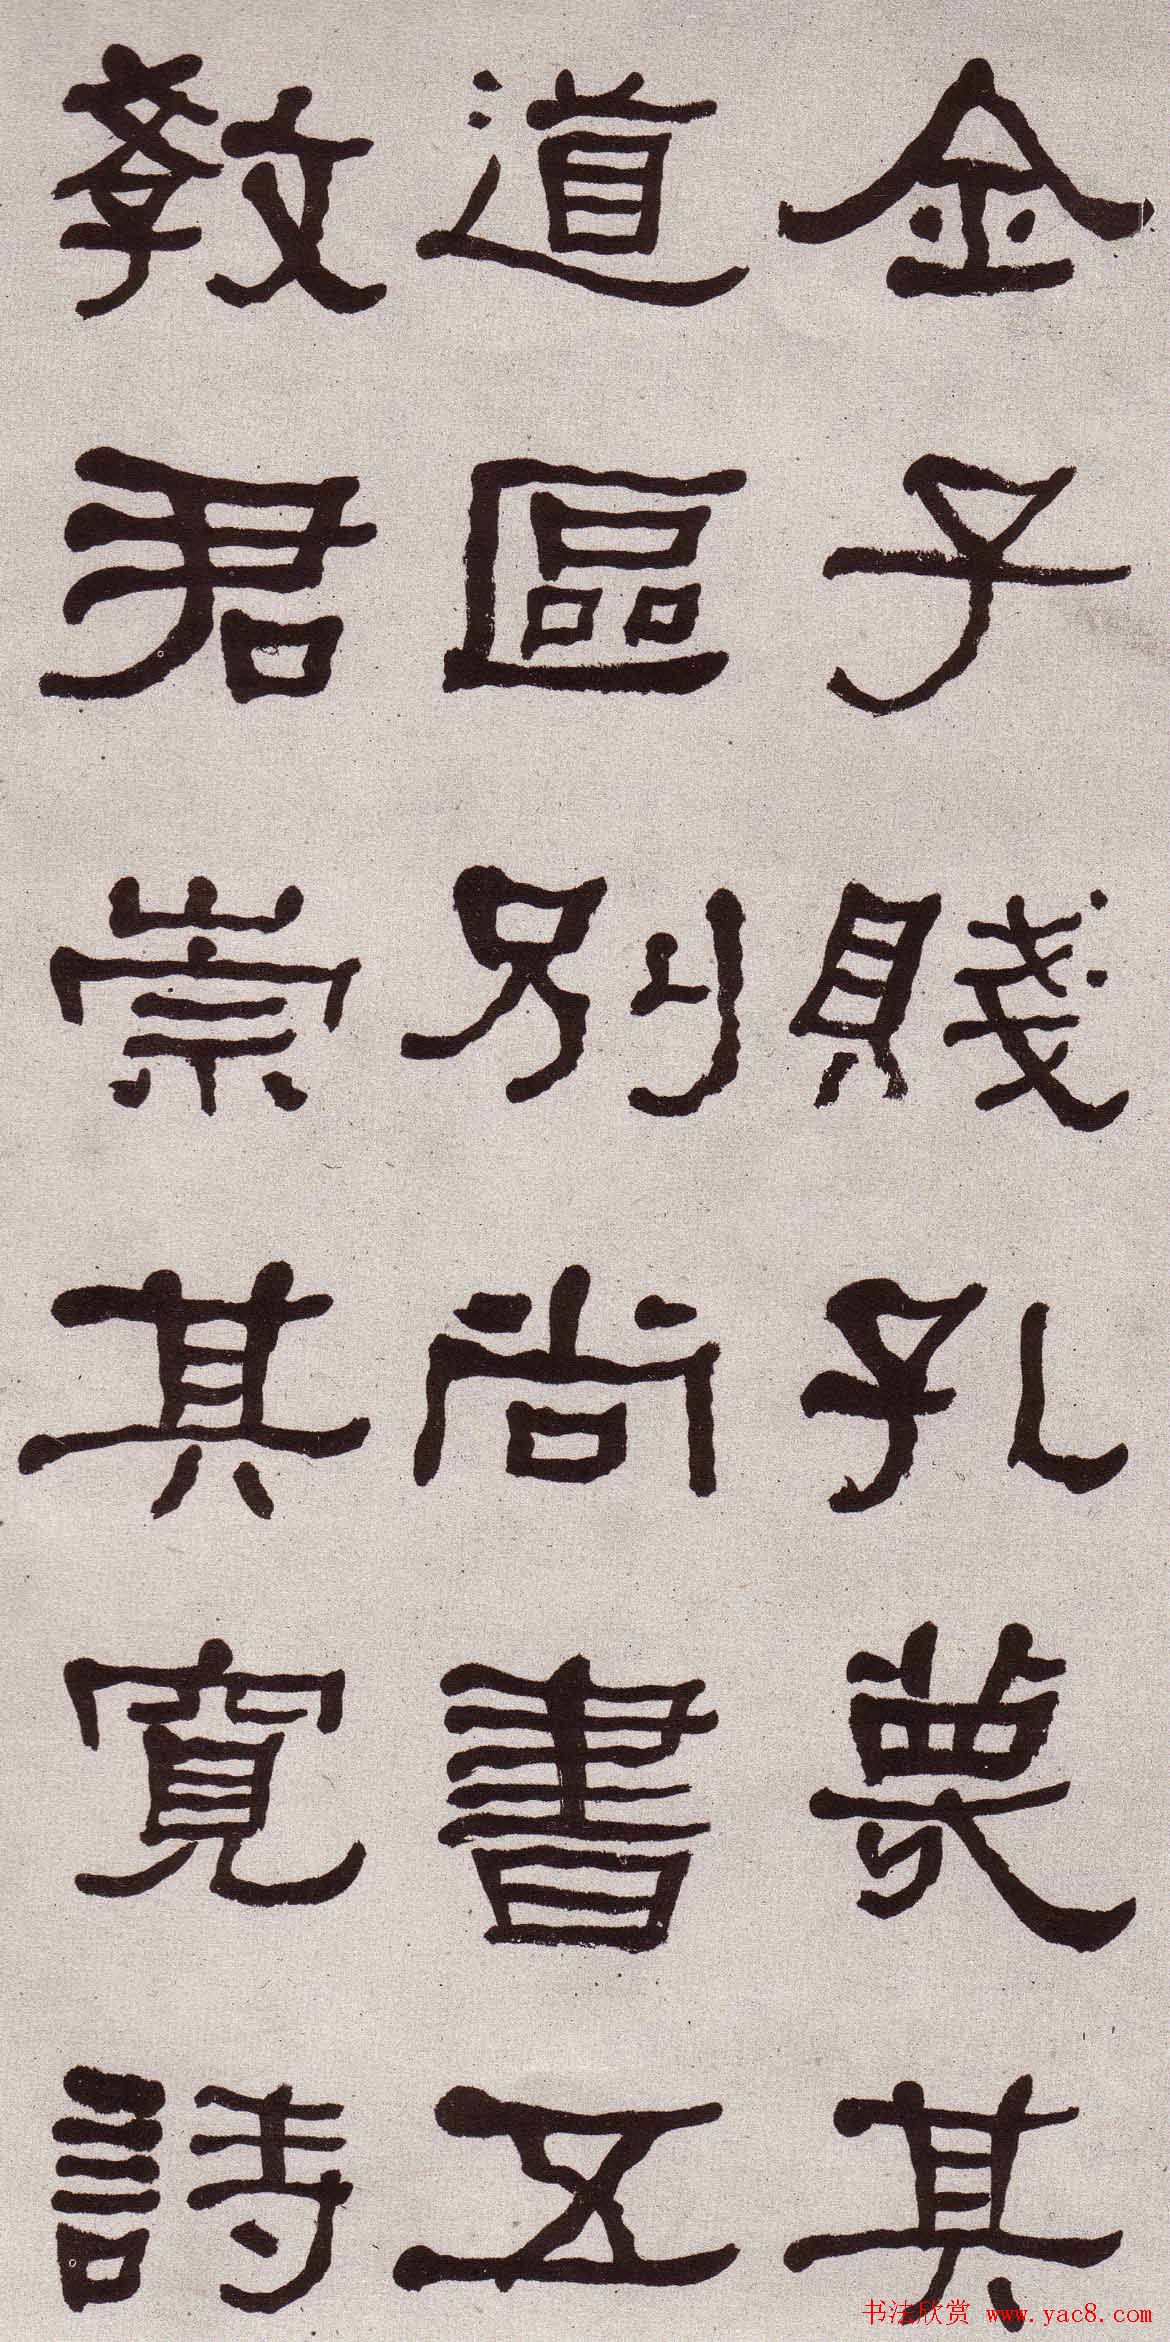 金子賤孔蔑其
道區別尚書五
教君崇其寬詩
书法欣赏 www.yac8.com